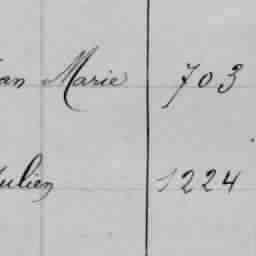 an Marie 703
ulien 1224